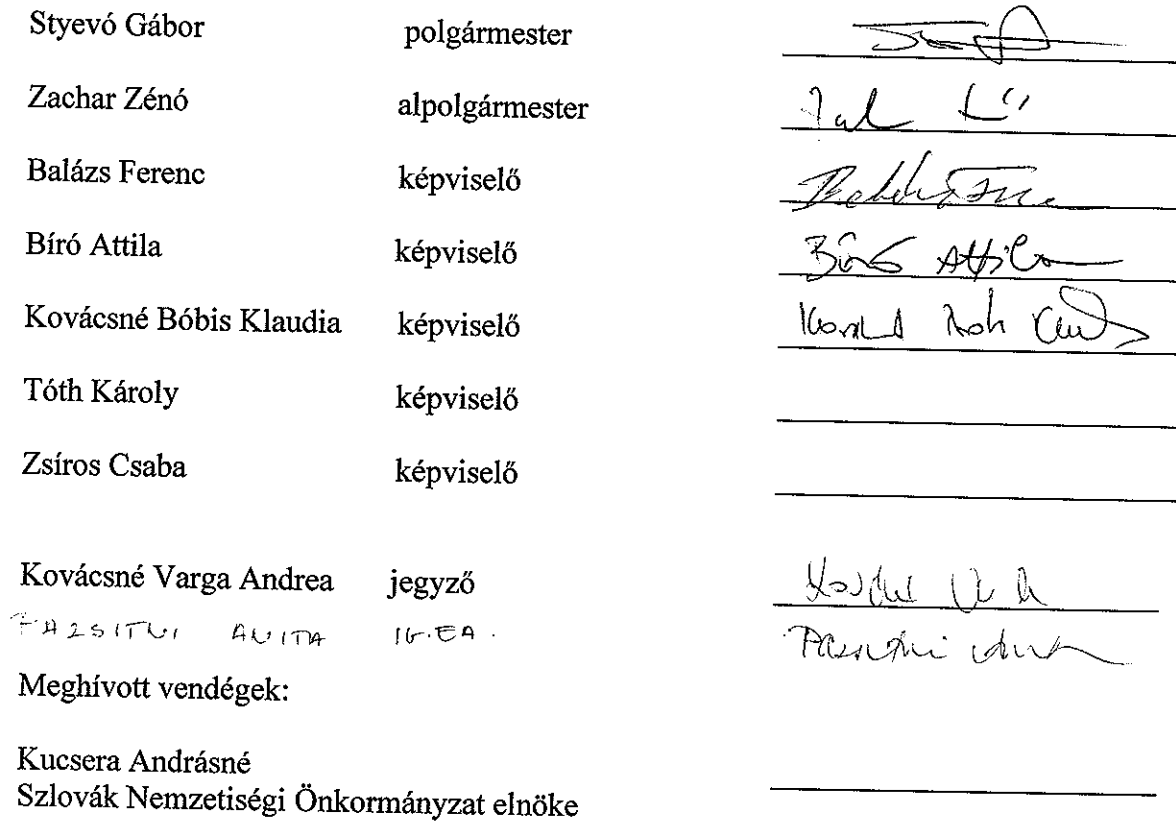 Styevó Gábor polgármester
Zachar Zénó alpolgármester
Balázs Ferenc képviselő
Bíró Attila képviselő Bíró Attila
Kovácsné Bóbis Klaudia képviselő
Tóth Károly képviselő
Zsíros Csaba képviselő
Kovácsné Varga Andrea jegyző
ANITA IG.EA.
Meghívott vendégek:
Kucsera Andrásné
Szlovák Nemzetiségi Önkormányzat elnöke